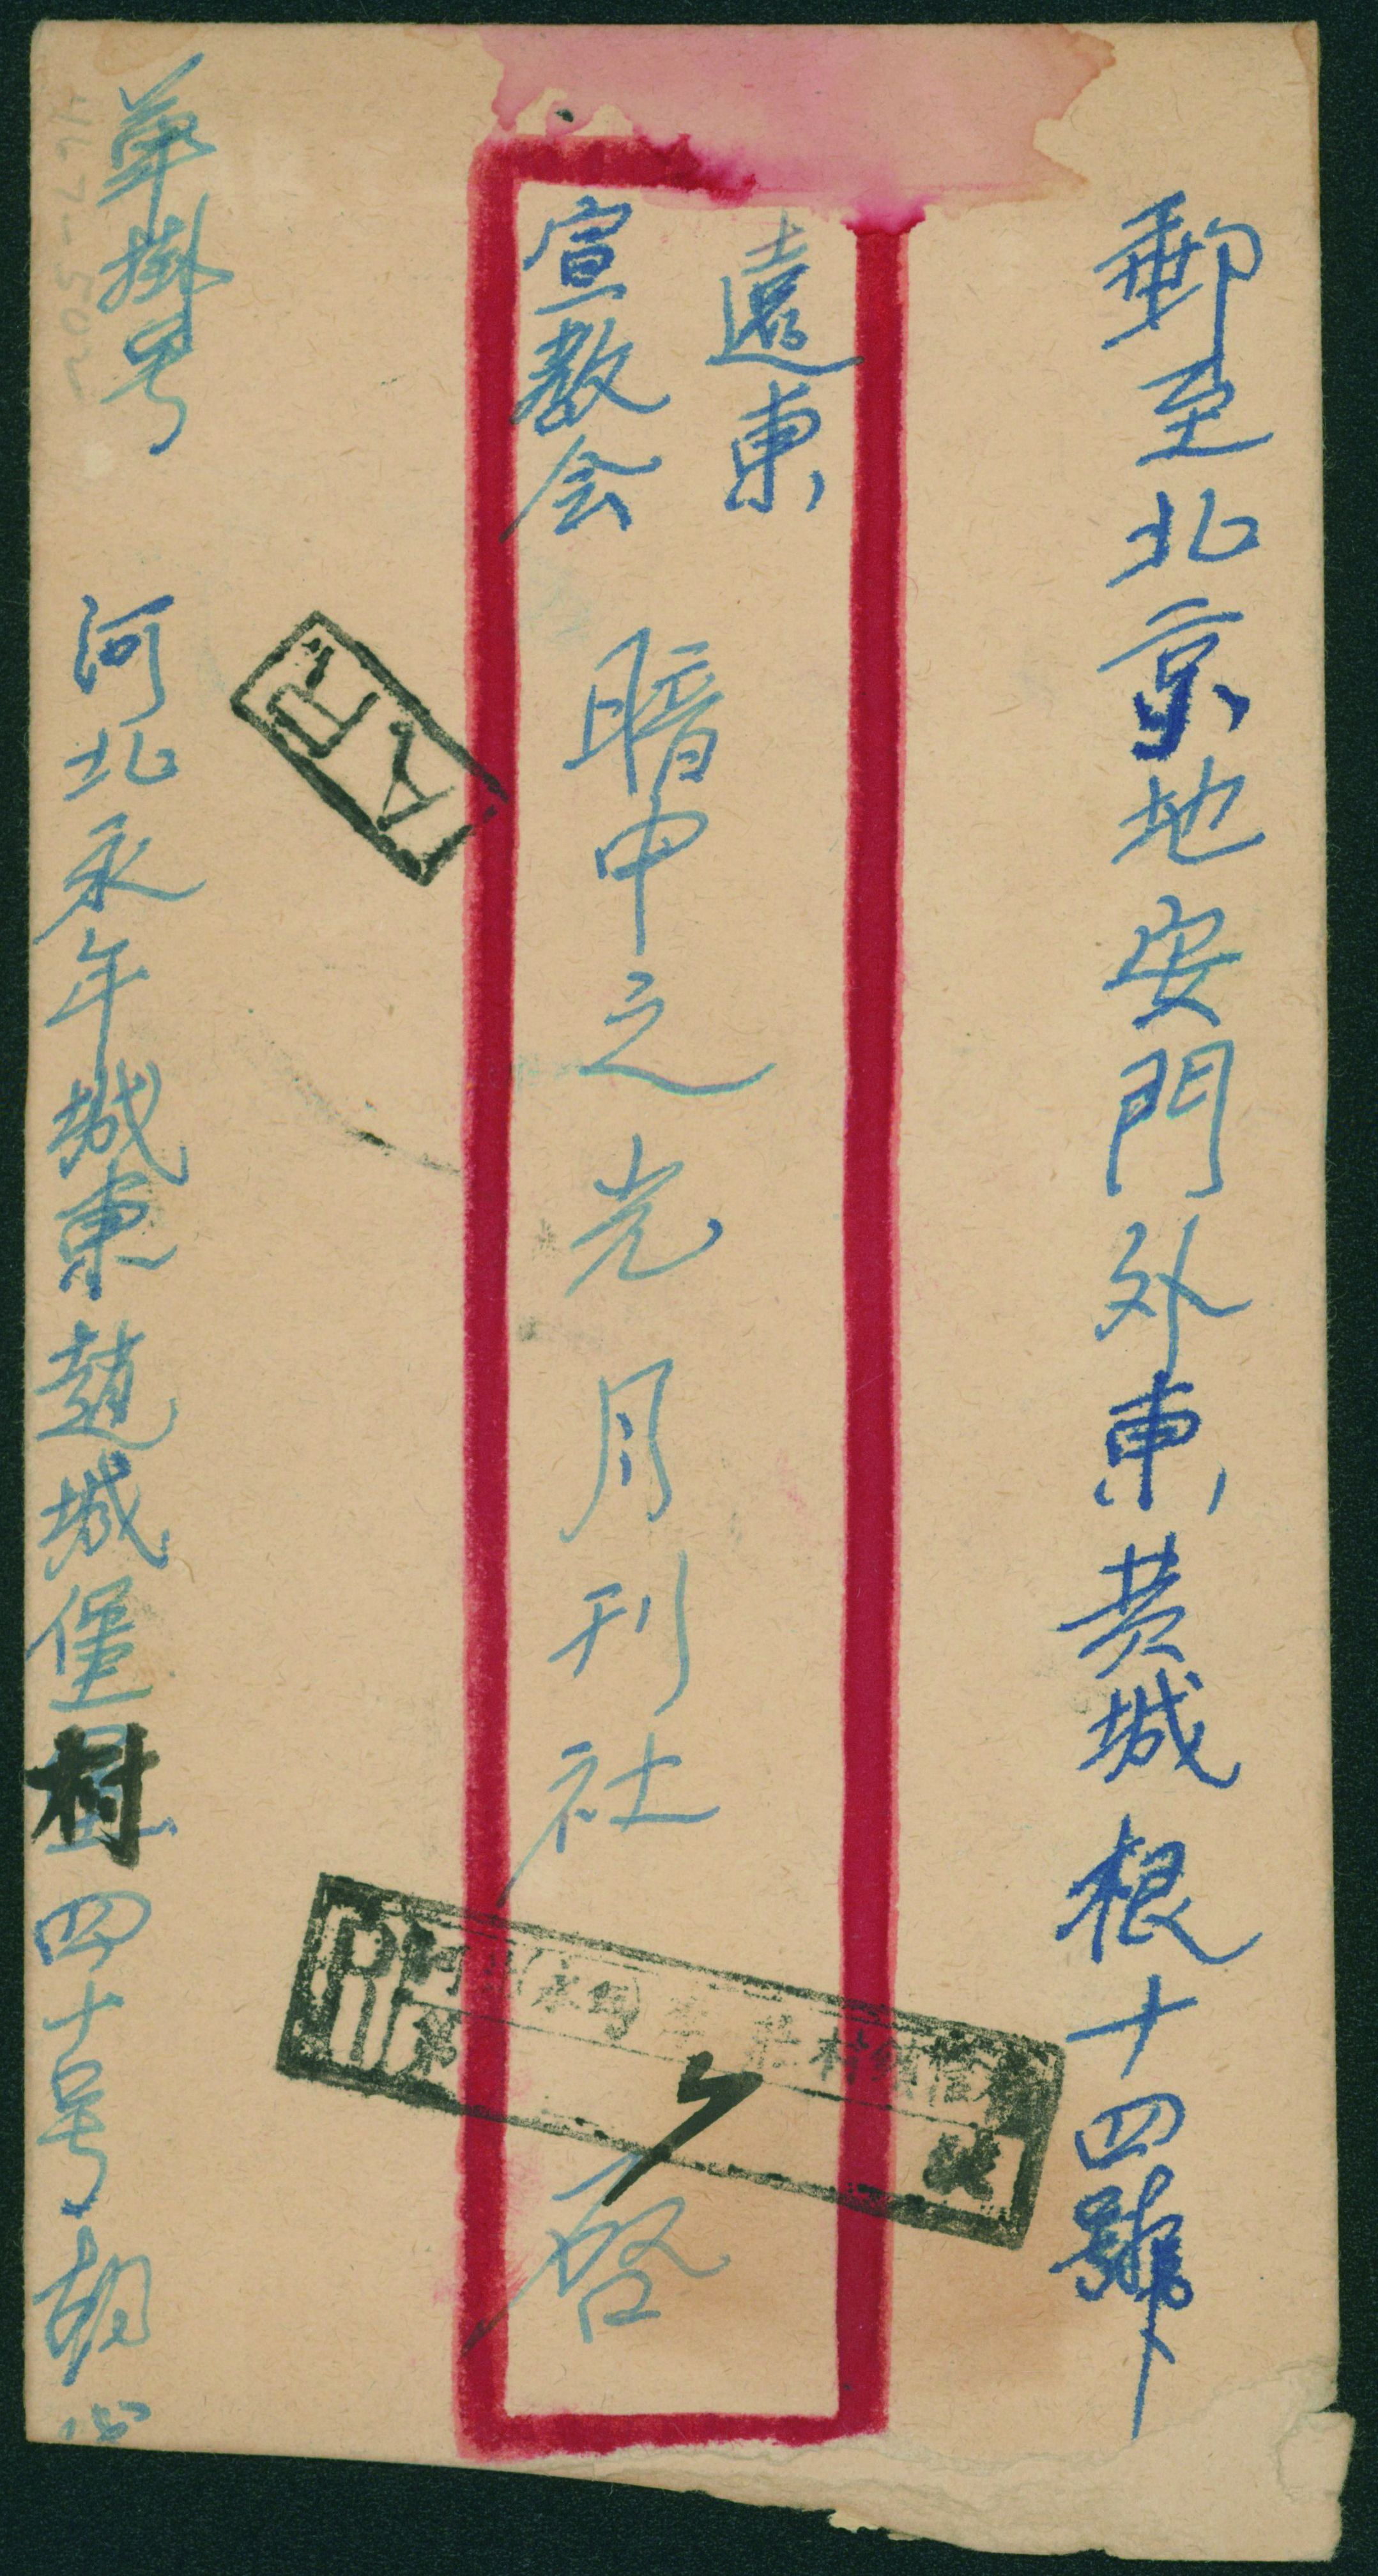 郵至北京地安門外東黄城根十四號
遠東
宣教会
暗中之光月刊社 啓
单掛号
河北永年城東趙城堡村四十号胡